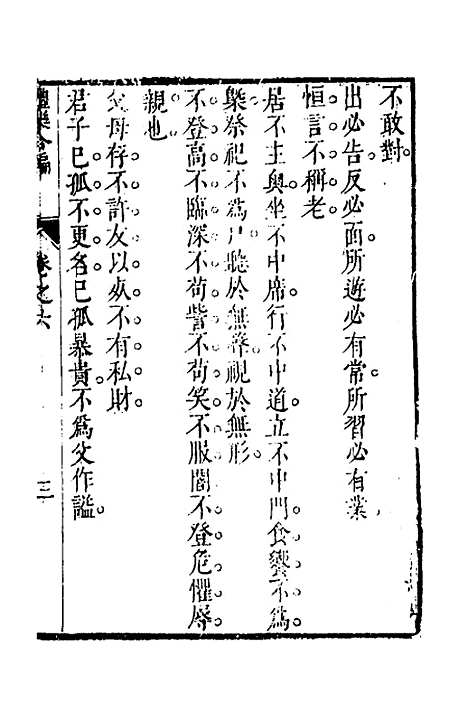 不敢對。
出必告反必面。所遊必有常。所習必有業
恒言不稱老
居不主奧坐不中席。行不中道。立不中門。食饗不爲
槩祭祀不爲尸。聽於無聲。視於無形。
不登高。不臨深。不苟訾。不苟笑。不服闇。不登危。懼辱。
親也。
父母存。不許友以死。不有私財。
君子已孤。不更名。已孤暴貴。不爲父作謚。
禮樂合編 卷之六 三